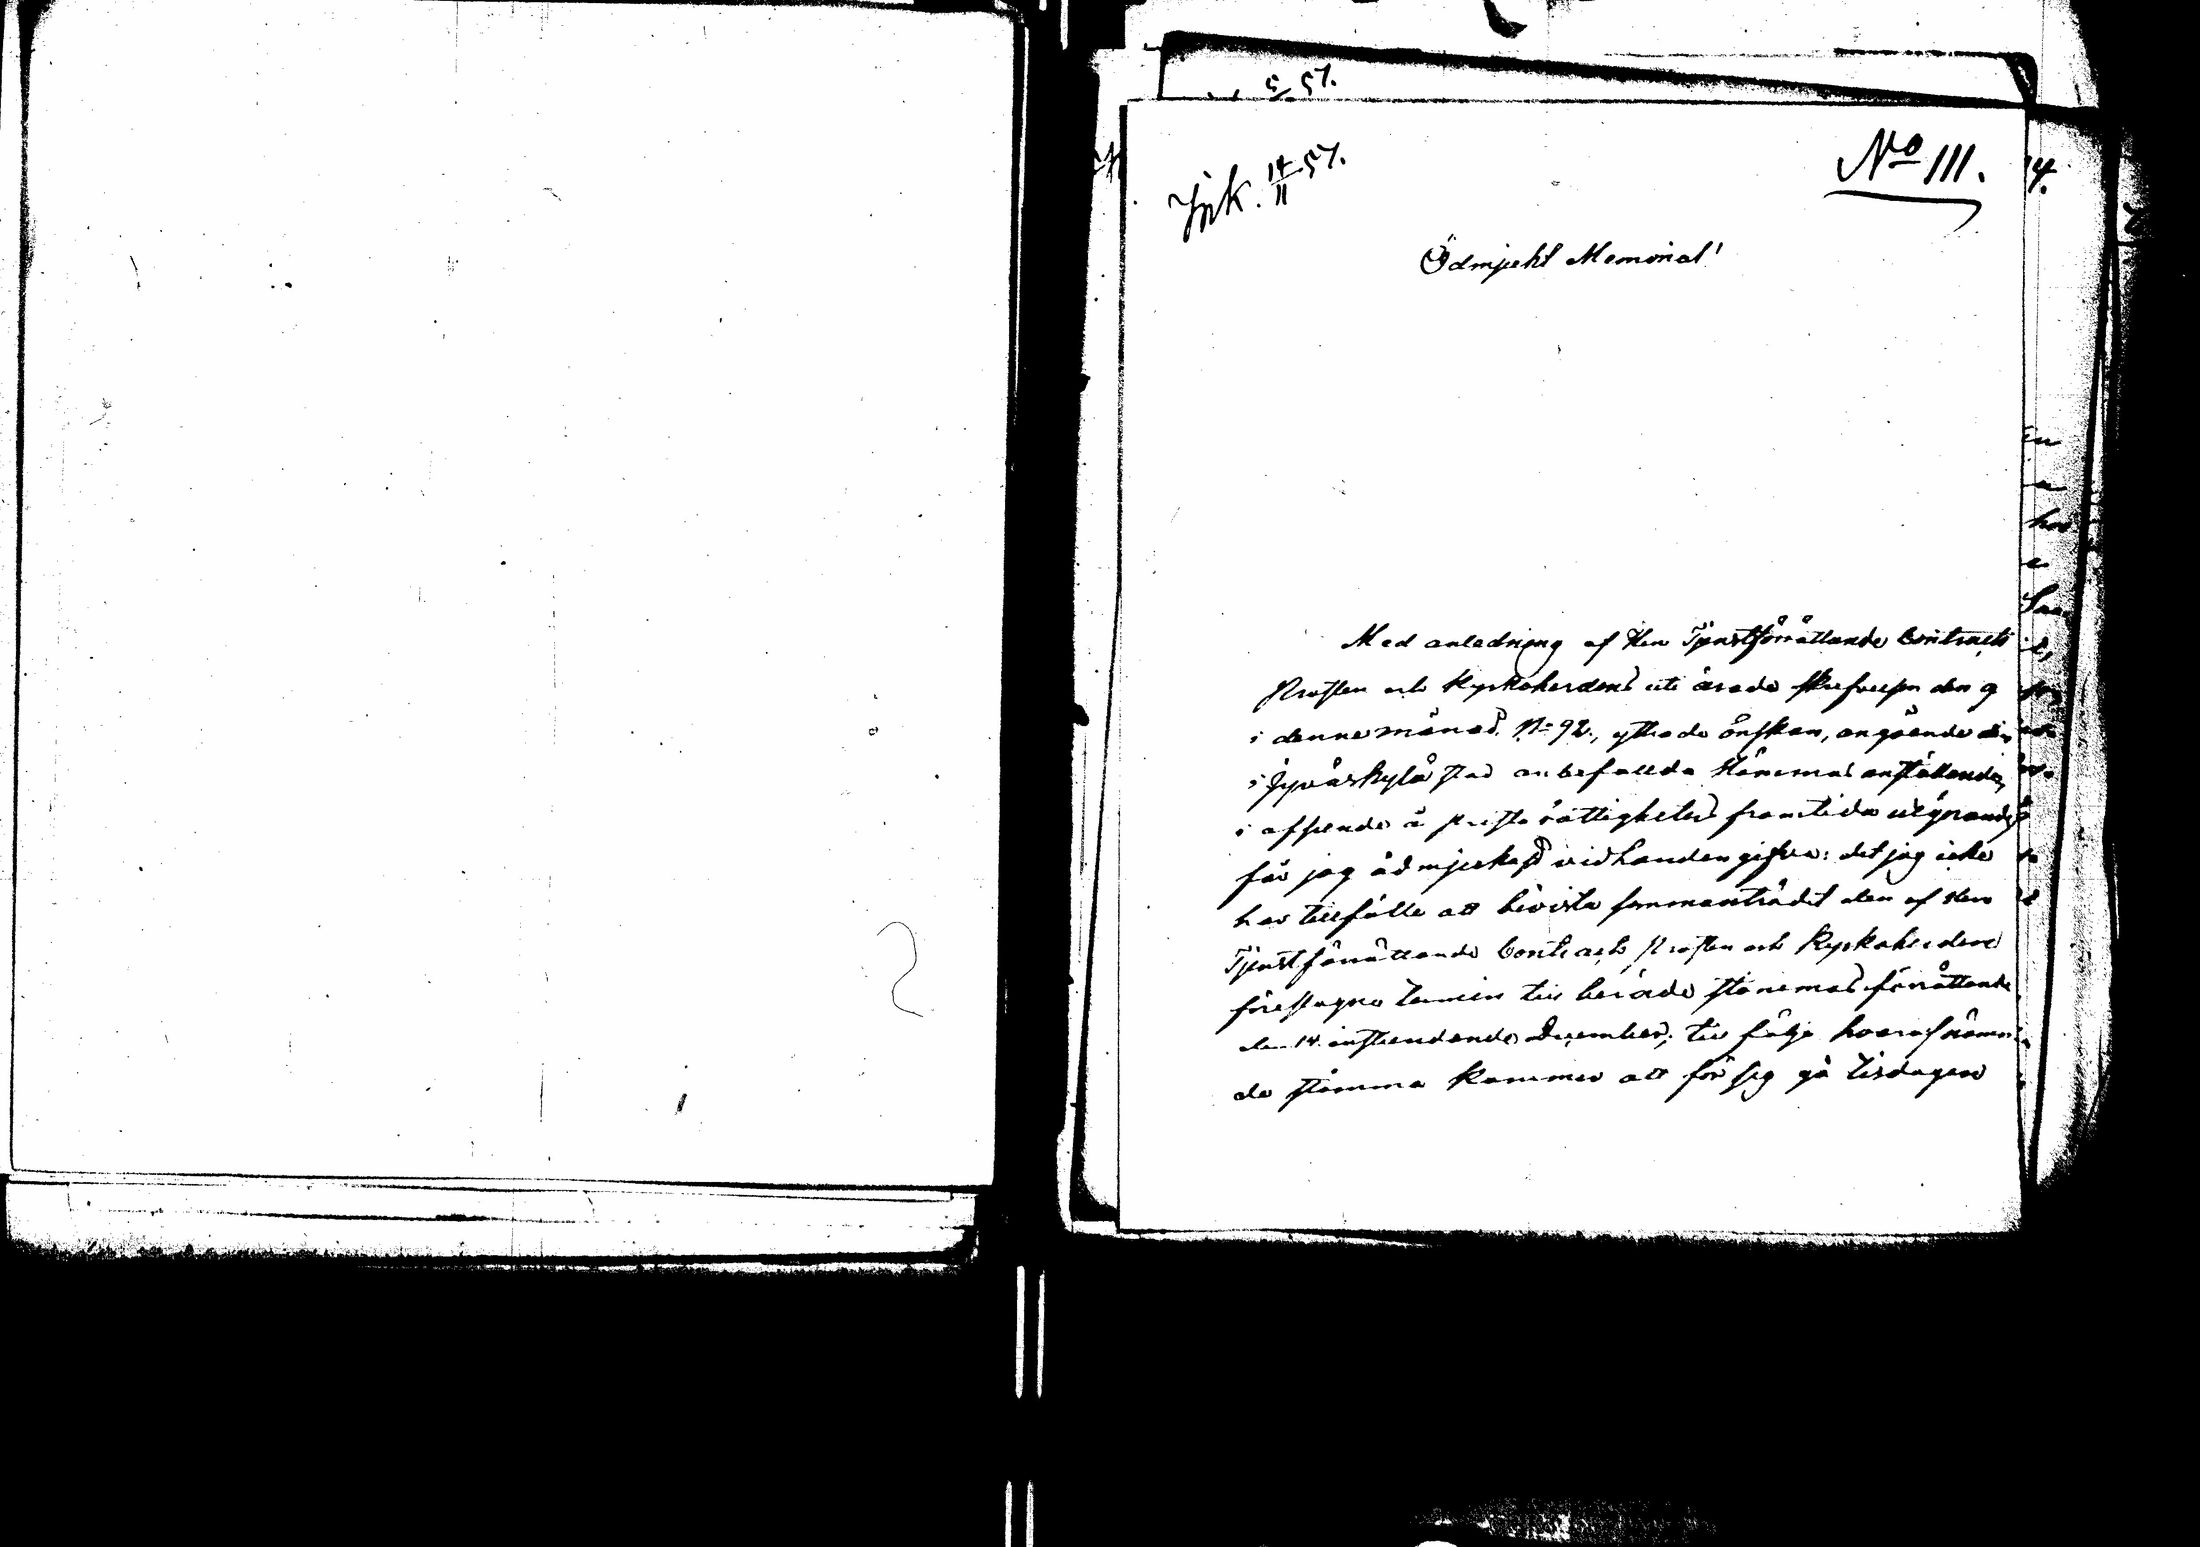 5/ 57.
Ink. 14/11 57.
No 111.
Ödmjukt Memorial!
Med anledning af Herr Tjenstförrättande Contracts
Prosten och Kyrkoherdens uti ärade skrifvelsen den 9
i denne månad No 92., yttrade önskan, angående den
i Jyväskylä stad anbefallda stämmas anställande,
i afseende å presterättigheters framtida utgörande,
får jag ödmjukast vidhandengifva: det jag icke
har tillfälle att bivista sammanträdet den af Herr
Tjenstförrättande Contracts Prosten och Kyrkoherden
föreslagna termin till berörde stämmas förrättande
den 14 instundande December, till följe hvaraf nämn-
da stämma kommer att för sig gå Tisdagen